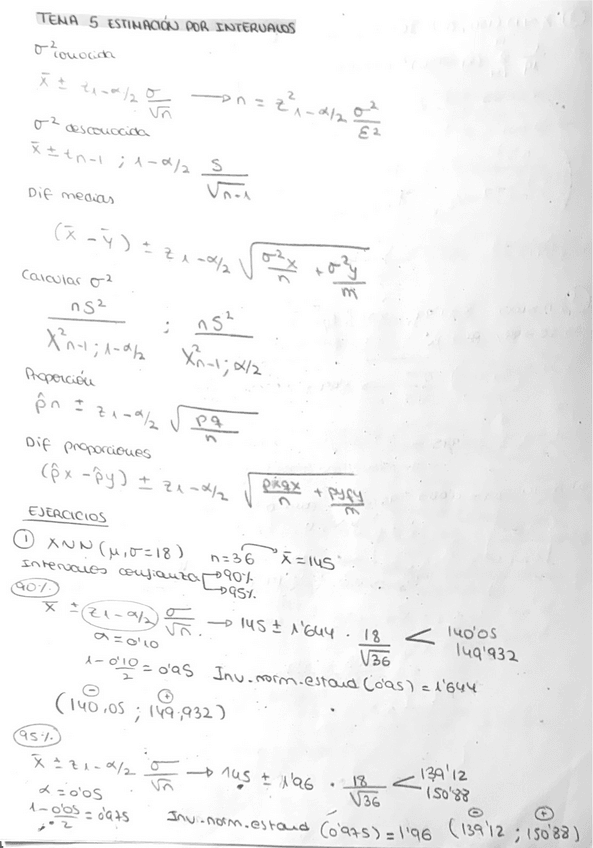 TEMA 5 ESTIMACIÓN POR INTERVALOS
σ² conocida
x̄ ± z1-α/2 σ/√n → n = z²1-α/2 σ²/ε²
σ² desconocida
x̄ ± tn-1 ; 1-α/2 S/√n-1
Dif medias
(x̄ - ȳ) ± z1-α/2 √(σ²x/n + σ²y/m)
Calcular σ²
nS²/X²n-1 ; 1-α/2 ; nS²/X²n-1 ; α/2
Proporción
p̂n ± z1-α/2 √(pq/n)
Dif proporciones
(p̂x - p̂y) ± z1-α/2 √(pxqx/n + pyqy/m)
EJERCICIOS
① X~N (μ, σ=18) n=36 x̄=145
Intervalos confianza →90%
→95%
90%
x̄ ± z1-α/2 σ/√n. → 145 ± 1'644 · 18/√36 < 140'05
149'932
α=0'10
1-0'10/2 = 0'95 Inv.norm.estand (0'95) = 1'644
(140,05 ; 149,932)
95%
x̄ ± z1-α/2 σ/√n → 145 ± 1'96 · 18/√36 < 139'12
150'88
α=0'05
1-0'05/2 = 0'975 Inv.norm.estand (0'975) = 1'96 (139'12 ; 150'88)